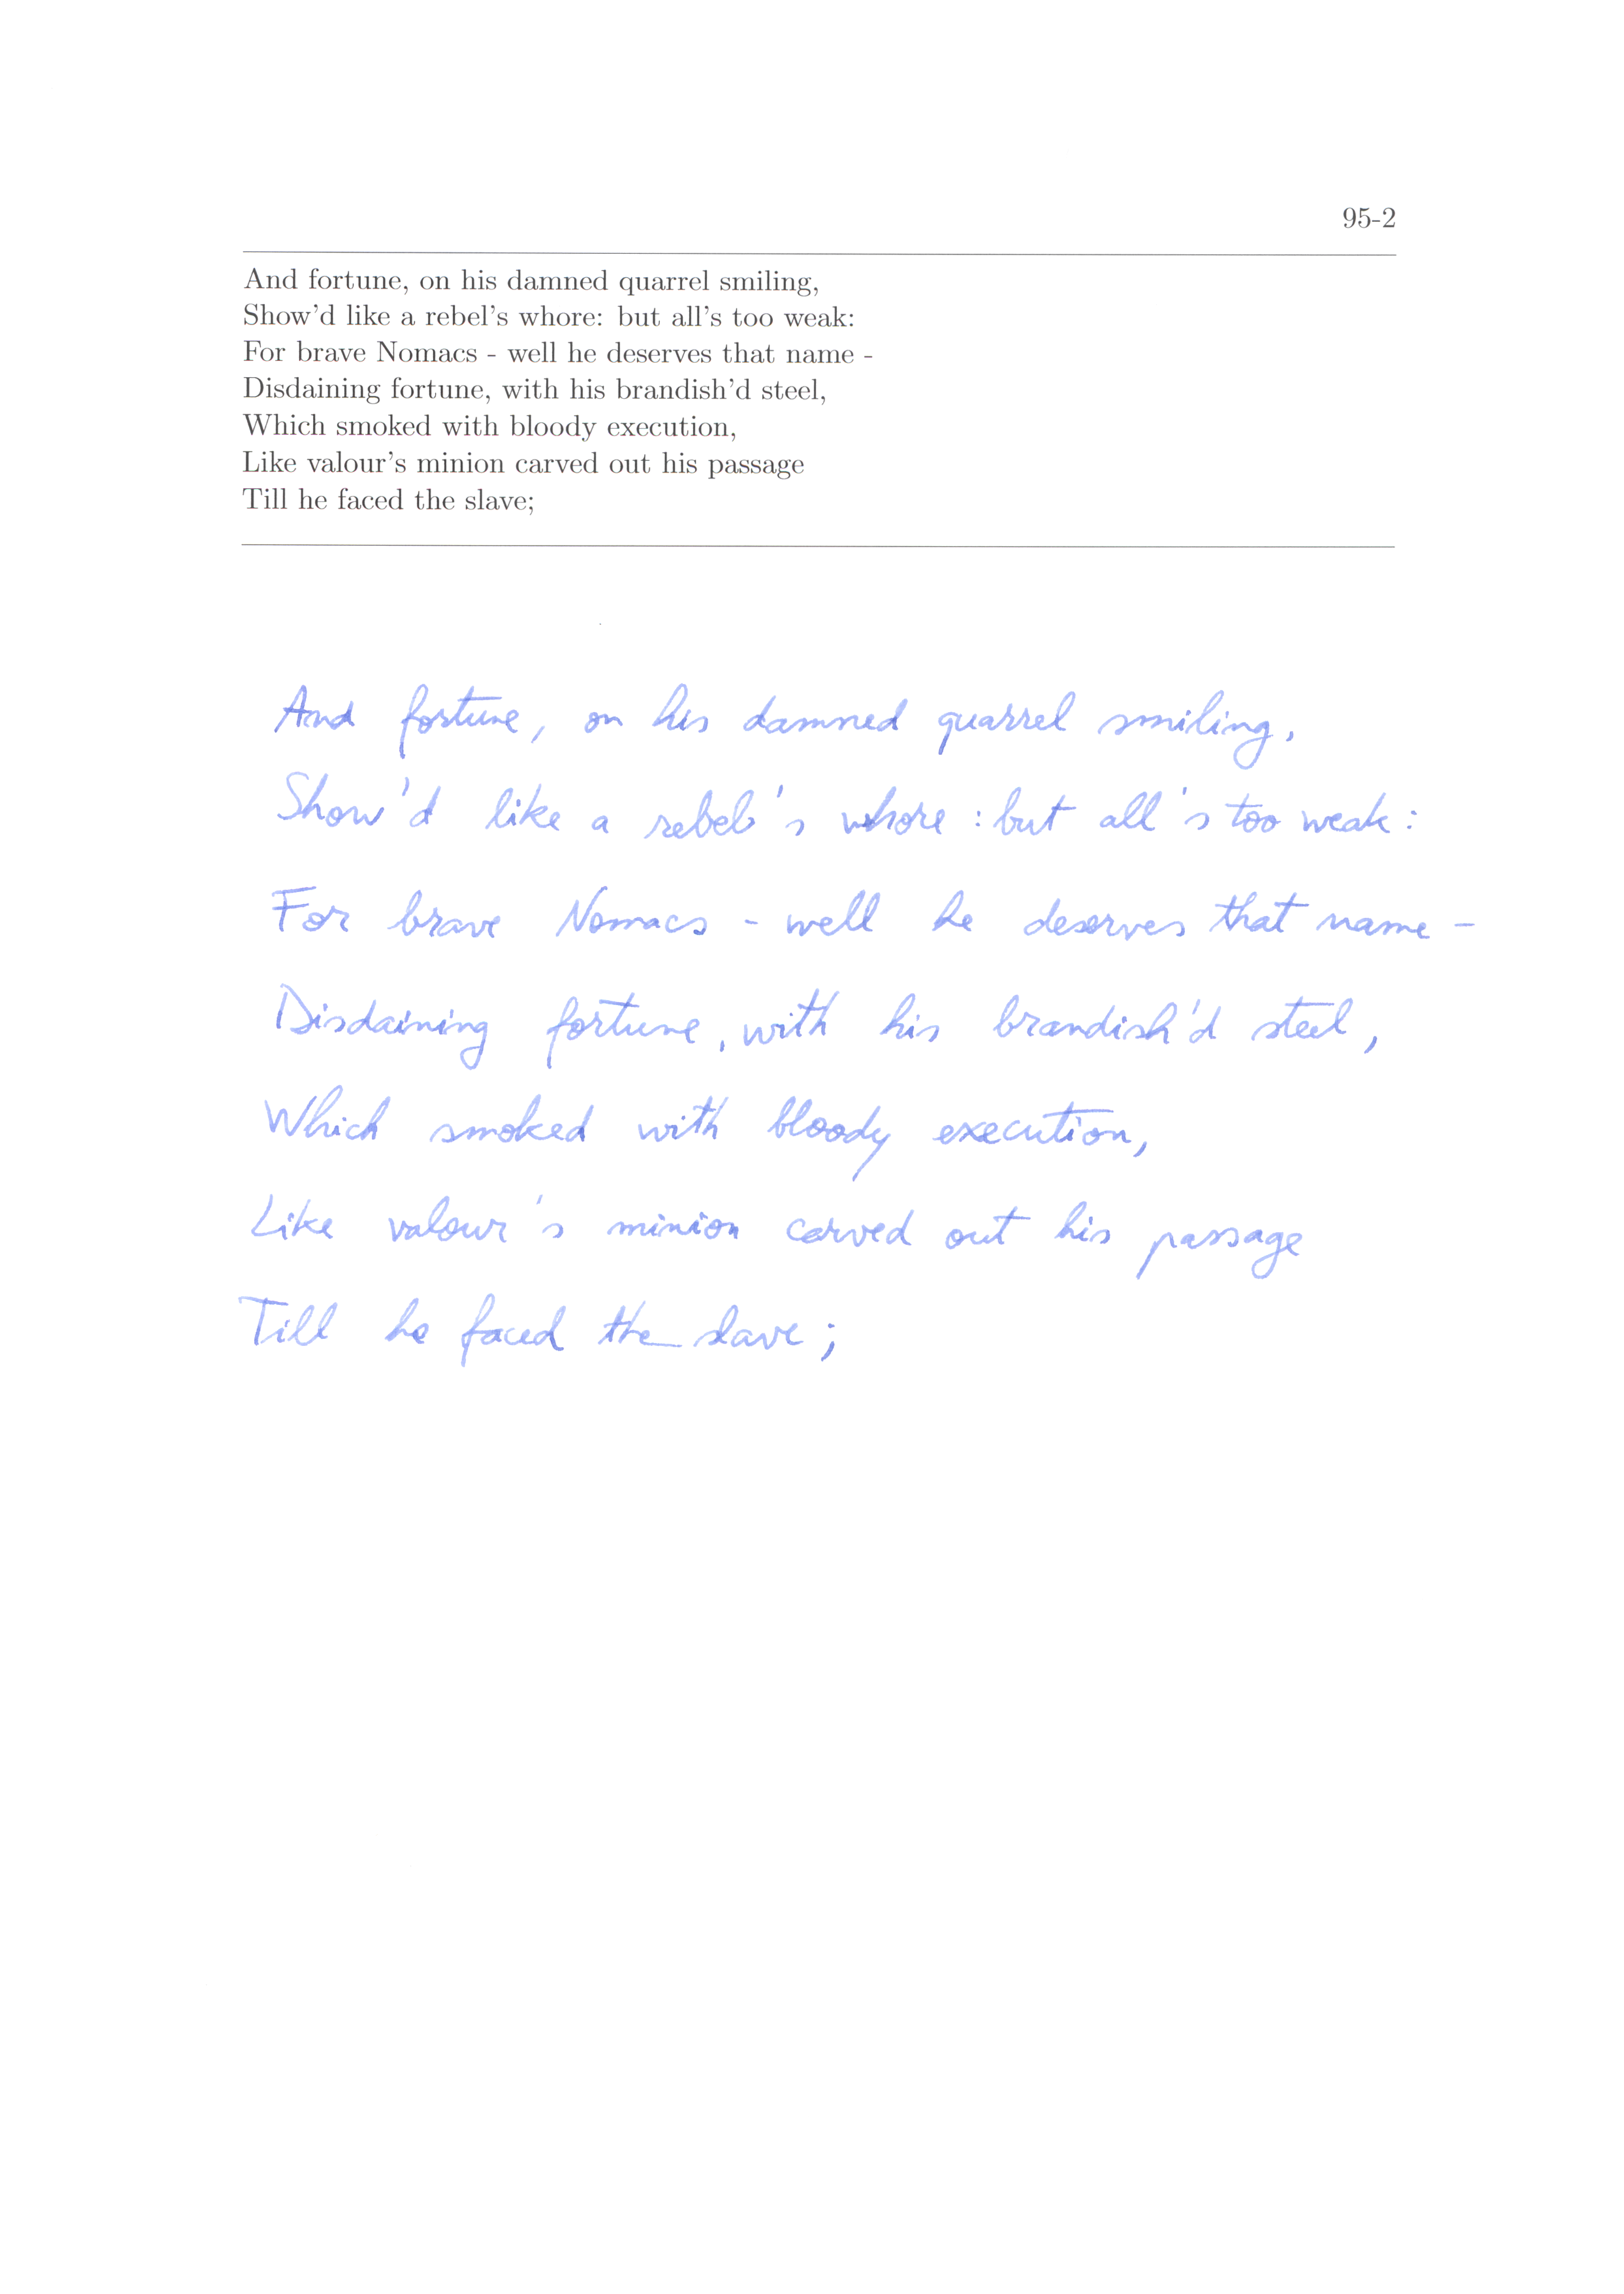 95-2
And fortune, on his damned quarrel smiling,
Show'd like a rebel's whore: but all's too weak:
For brave Nomacs - well he deserves that name -
Disdaining fortune, with his brandish'd steel,
Which smoked with bloody execution,
Like valour's minion carved out his passage
Till he faced the slave;
And fortune, on his damned quarrel smiling,
Show'd like a rebel's whore : but all's too weak :
For brave Nomacs - well he deserves that name -
Disdaining fortune, with his brandish'd steel,
Which smoked with bloody execution,
Like valour's minion carved out his passage
Till he faced the slave;